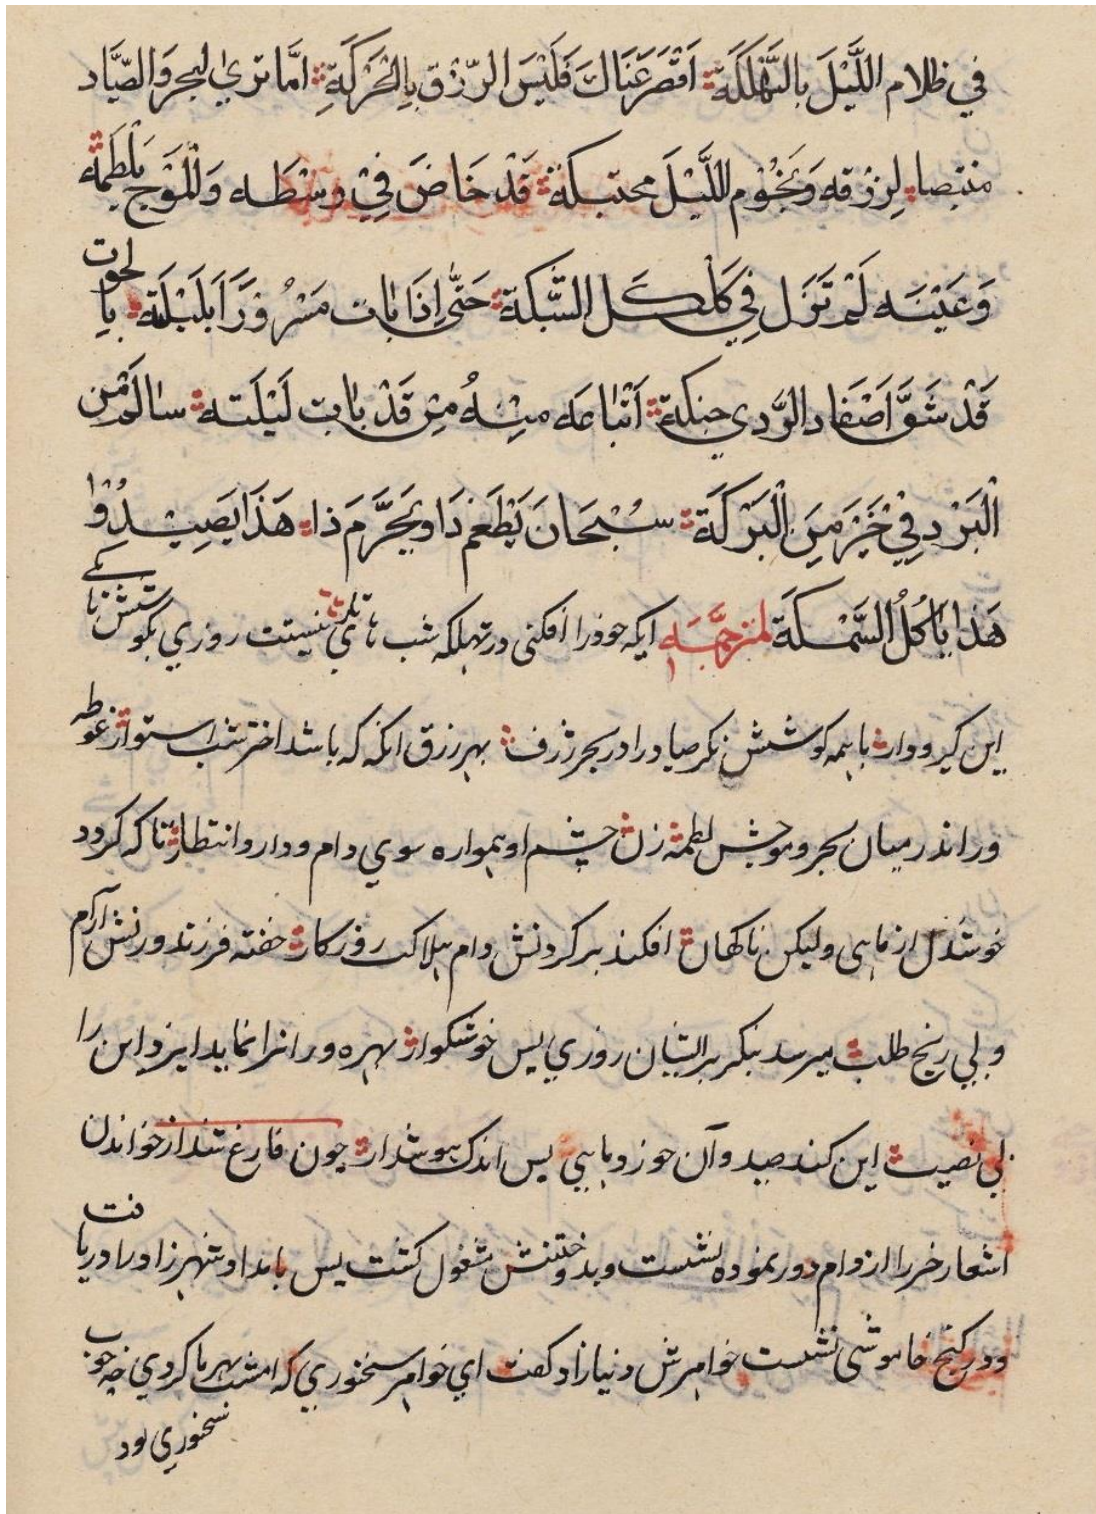 في ظلام اللَّيْلَ بالتَّهْلَكَة اَقْصَرَ عَنَاكَ فَلَيْسَ الرِّزْقِ بِالحَرَكَةِ امَّا ترىٰ لبحرَ وَالصَّيَّاد
منتصبا لِرزقه وَنجُوْم اللَّيْلَ محتبكة قَدْ خَاضَ فِيْ وسْطه وَلْمَوْج يَلْطِمُه
وَعَيْنَه لَمْ تَزَل فِي كَلكَل الشَّبكة حَتّٰى اِذَا بات مَسْرُوْرًا بَلَيْلَة بالحوت
قَدْ شَقَّ اَصْفاد الرَّدي حنكة اتْباعَه مِنْهُ مِن قَدْ بات لَيْلَته سالم من
الْبَرْد فِيْ خَيْر مِنَ الْبَرَكَة سُبْحَانَ يَطْعَم ذَا وَيحَرَّم ذا هَذَا يَصِيْدُ وْا
هَذا يأكُلُ السَّمْكَة لمترجمه ايكه خودرا افكنى در تهلكه شب تاى نيست روزي بكوشش تا كے
اين كير ودار با همه كوشش نكر صياد را در بحر ژرف بهر رزق انكه كه باشد اختر شب استوار غوطه
ور اندر ميان بحر و موجش لطمه زن چشم او همواره سوي دام ودار و انتظار تا كه كردد
خوشدل از ماهى وليكن ناكهان افكند بر كردنش دام هلاك روزكار خفته فرزند و زنش آرام
و بي رنج طلب ميرسد بنكر برايشان روزي بس خوشكوار بهره ور انرا نمايد ايزد و اين را
بي نصيب اين كند صيد و آن خورد ماهي بس اندك هوشدار چون فارغ شد از خواندن
اشعار خر را از دام دور نموده نشست و بدوختنش مشغول كشت پس بامداد شهرزاد را دريافت
و در كنج خاموشى نشست خواهرش دنيازاد كفت اي خواهر سخنوري كه امشب بهر ما كردي چه خوب
سخنوري بود